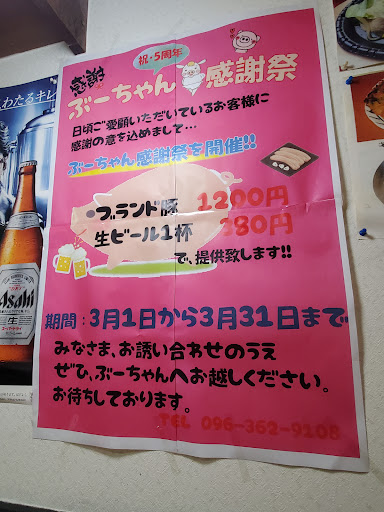 祝・5周年
感謝
ぶーちゃん感謝祭
日頃ご愛顧いただいているお客様に
感謝の意を込めまして…
ぶーちゃん感謝祭を開催!!
•ブランド豚 1200円
生ビール1杯 380円
で、提供致します!!
期間:3月1日から3月31日まで
みなさま、お誘い合わせのうえ
ぜひ、ぶーちゃんへお越しください。
お待ちしております。
TEL 096-362-9108
わたるキレ
Asahi
生